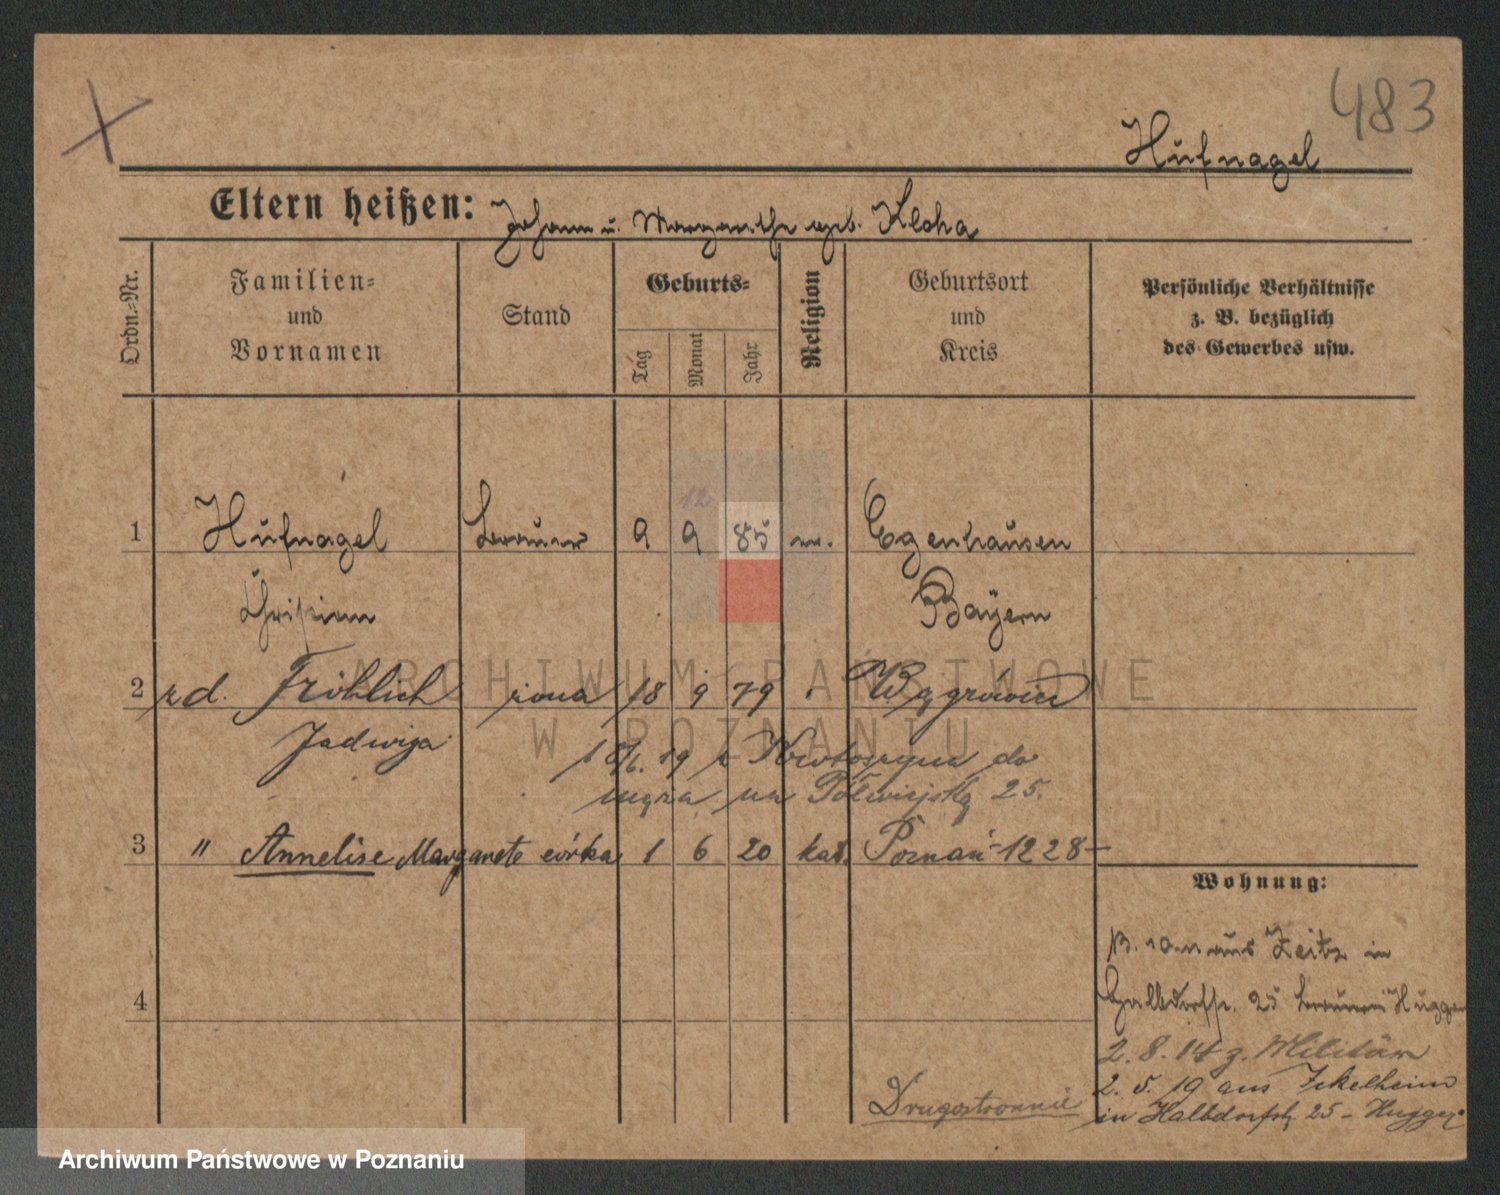 483
Hufnagel
Eltern heißen: Johann u. Margarethe geb. Kleha
Ordn.-Nr.
Familien-
und
Vornamen
Stand
Geburts-
Tag
Monat
Jahr
Religion
Geburtsort
und
Kreis
Persönliche Verhältnisse
z. B. bezüglich
des Gewerbes usw.
12
1 Hufnagel Brauer 9 9 85 Egenhausen
Christian Bayern
2 zd. Fröhlich żona 18 9 79 Wągrówiec
Jadwiga 19 z Krotoszyna do
męża na Półwiejską 25.
3 " Annelise Margarete córka 1 6 20 kat. Poznań - 1228 -
Wohnung:
aus Zeitz in
4 Halbdorfstr. 25 Brauerei Hugger
2. 8. 14 z. Militär
2. 5. 19 aus Ickelheim
in Halbdorfstr. 25 - Hugger
Drugostronnie
ARCHIWUM PAŃSTWOWE
W POZNANIU
Archiwum Państwowe w Poznaniu